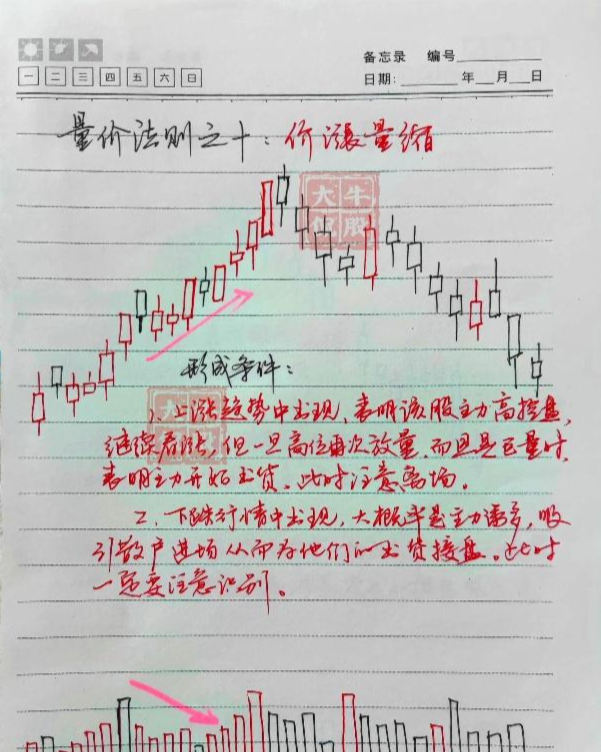 备忘录 编号
一 二 三 四 五 六 日
日期: 年 月 日
量价法则之十：价涨量缩
大牛
股
形成条件：
1、上涨趋势中出现，表明该股主力高控盘，
继续看涨，但一旦高位再次放量，而且是巨量时，
表明主力开始出货。此时注意离场。
2、下跌行情中出现，大概率是主力诱多，吸
引散户进场从而为他们的出货接盘。此时
一定要注意识别。